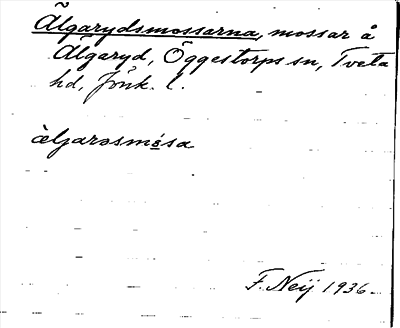 Älgarydsmossarna, mossar å
Älgaryd, Öggestorps sn, Tveta
hd, Jönk. l.
æljarəsmɵsa
F. Neij 1936.